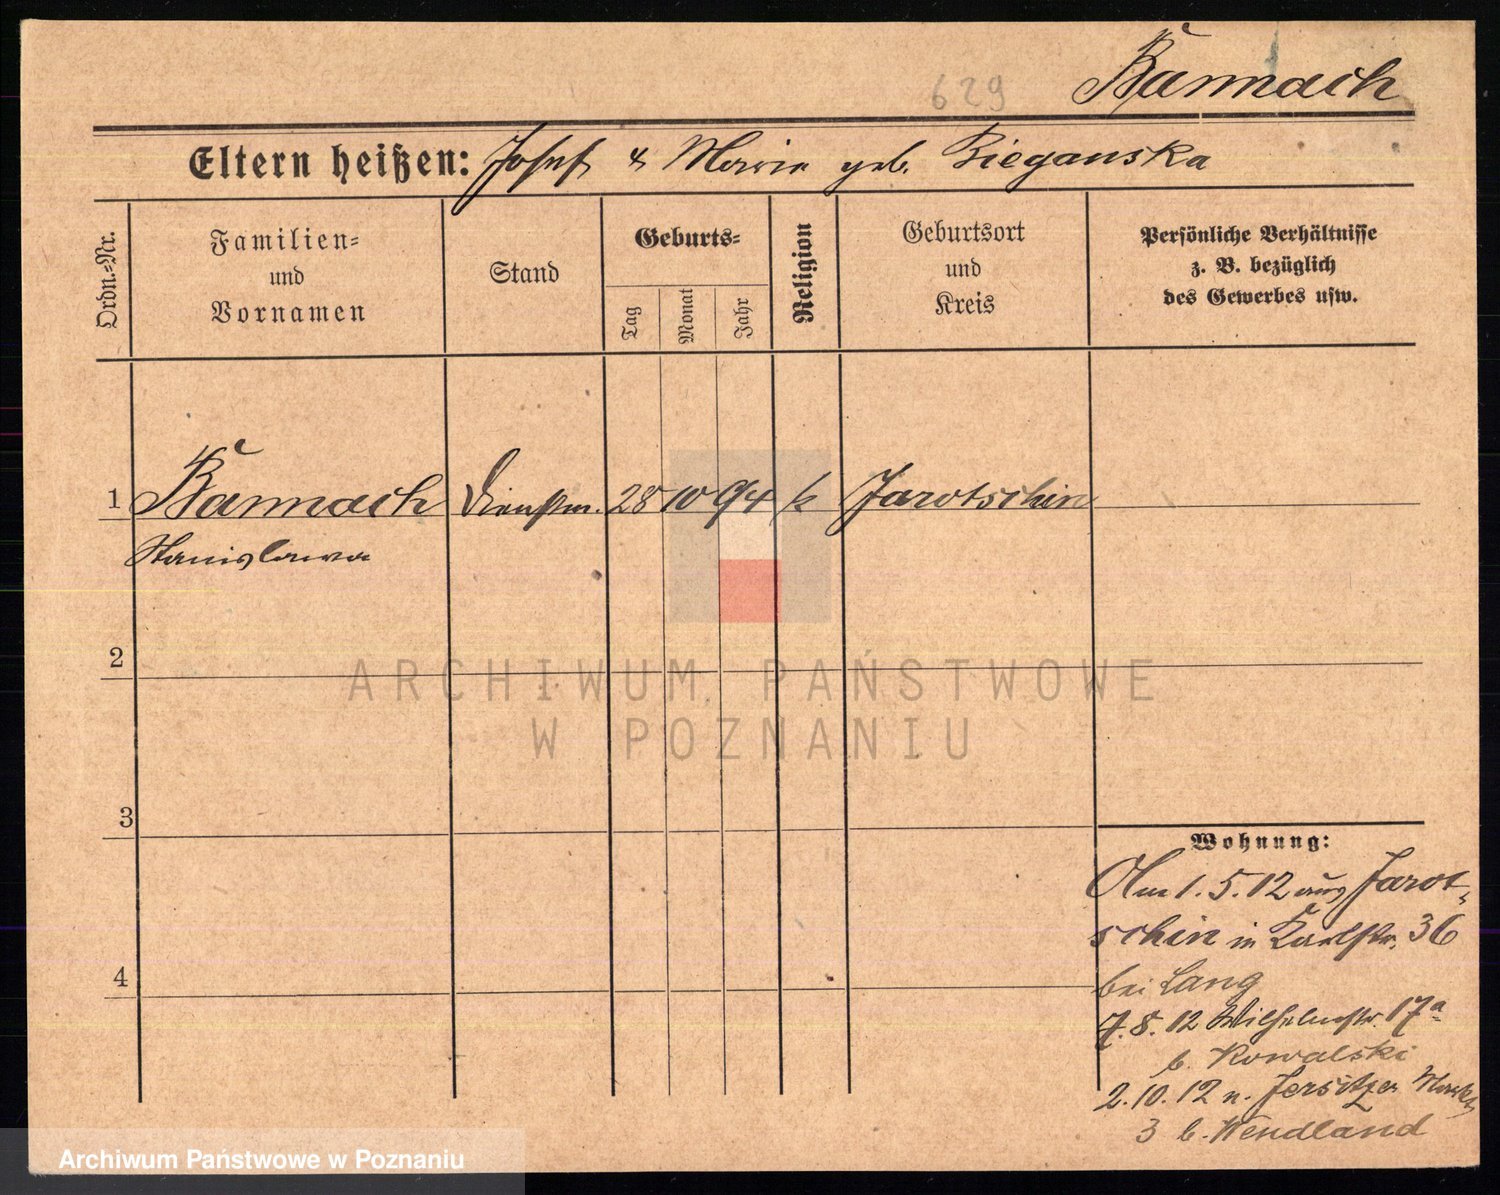 629
Bannach
Eltern heißen: Josef & Marie geb. Bieganska
Ordn.-Nr.
Familien-
und
Vornamen
Stand
Geburts-
Tag
Monat
Jahr
Religion
Geburtsort
und
Kreis
Persönliche Verhältnisse
z. B. bezüglich
des Gewerbes usw.
1 Bannach Dienstm. 28 10 94 k Jarotschin
Stanislawa
2
3
4
Wohnung:
Am 1.5.12 aus Jarot-
schin in Karlstr. 36
bei Lang
7.8.12 Wilhelmstr. 17a
b. Kowalski
2.10.12 n. Jersitzer Markt
3 b. Wendland
ARCHIWUM PAŃSTWOWE
W POZNANIU
Archiwum Państwowe w Poznaniu